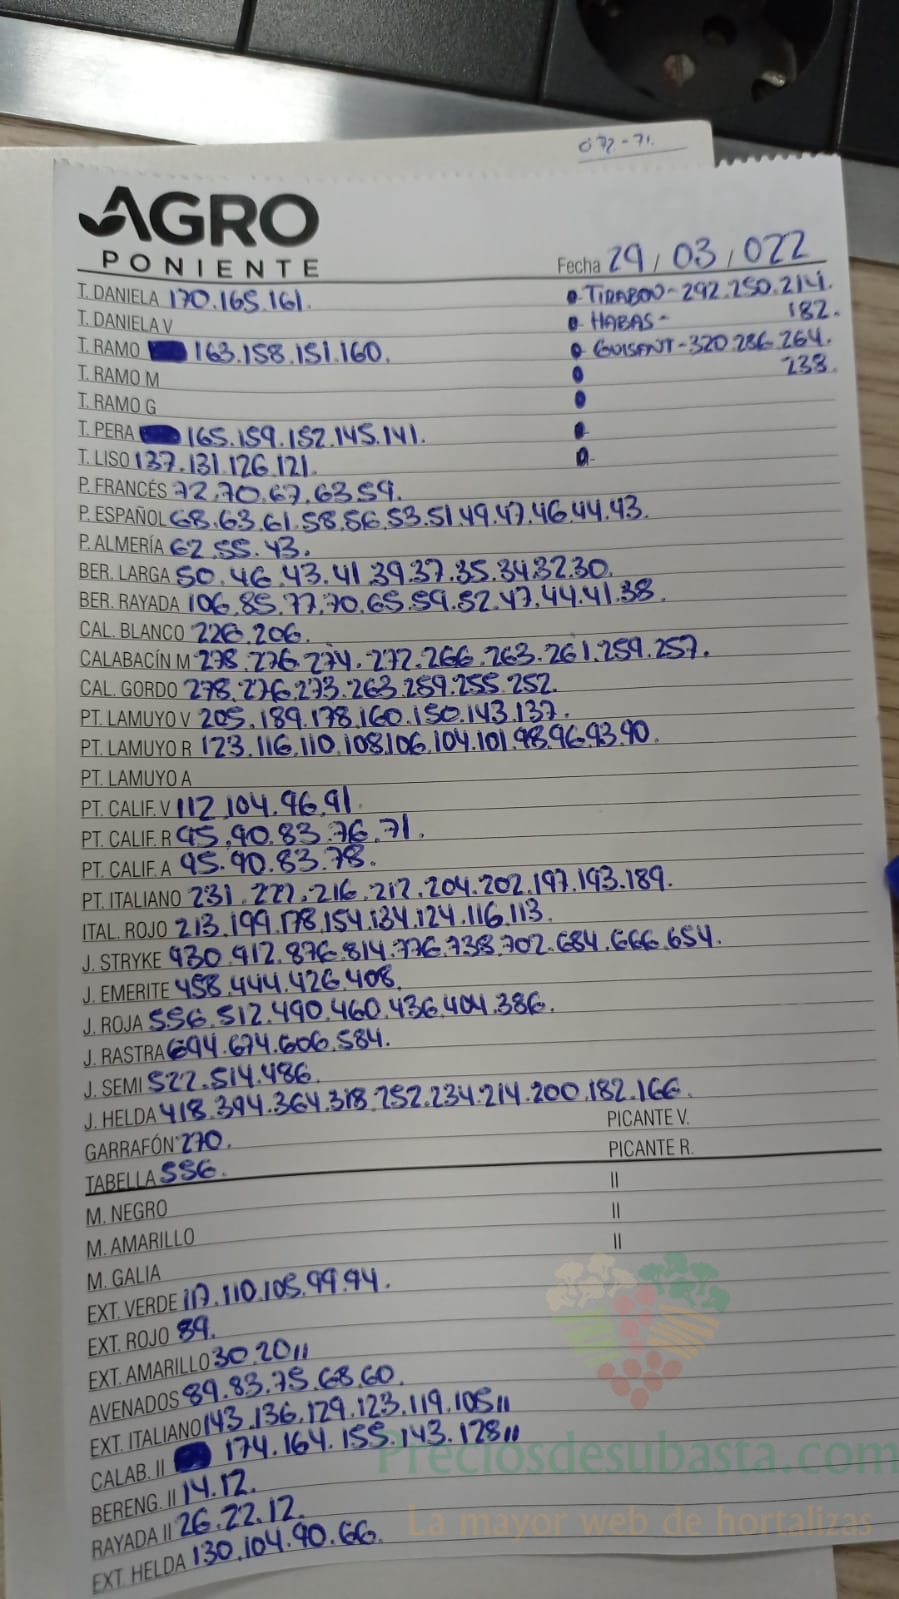 072-71.
AGRO
PONIENTE
Fecha 29/03/022
T. DANIELA 170.165.161.
TIRABOU-292.250.214.
182.
T. DANELA V
HABAS-
T. RAMO 163.158.151.160.
GUISANT-320.286.264.
238.
T. RAMO M
T. RAMO G
T. PERA 165.159.152.145.141.
T. LISO 137.131.126.121.
P. FRANCÉS 72.70.67.63.59.
P. ESPAÑOL 68.63.61.58.56.53.51.49.47.46.44.43.
P. ALMERÍA 62.55.43.
BER. LARGA 50.46.43.41.39.37.35.34.32.30.
BER. RAYADA 106.85.77.70.65.59.52.47.44.41.38.
CAL. BLANCO 226.206.
CALABACÍN M 278.276.274.272.266.263.261.259.257.
CAL. GORDO 278.276.273.263.259.255.252.
PT. LAMUYO V 205.189.178.160.150.143.137.
PT. LAMUYO R 123.116.110.108.106.104.101.98.96.93.90.
PT. LAMUYO A
PT. CALIF. V 112.104.96.91.
PT. CALIF. R 95.90.83.76.71.
PT. CALIF. A 95.90.83.78.
PT. ITALIANO 231.227.216.212.204.202.197.193.189.
ITAL. ROJO 213.199.178.154.134.124.116.113.
J. STRYKE 930.912.876.814.776.738.702.684.666.654.
J. EMERITE 458.444.426.408.
J. ROJA 556.512.490.460.436.404.386.
J. RASTRA 694.674.606.584.
J. SEMI 522.514.486.
J. HELDA 418.394.364.318.252.234.214.200.182.166.
GARRAFÓN 270.
PICANTE V.
TABELLA 556.
PICANTE R.
M. NEGRO
II
M. AMARILLO
II
M. GALIA
II
EXT. VERDE 117.110.105.99.94.
EXT. ROJO 89.
EXT. AMARILLO 30.20 11
AVENADOS 89.83.75.68.60.
EXT. ITALIANO 143.136.129.123.119.105 11
CALAB. II 174.164.155.143.128 11
BERENG. II 14.12.
RAYADA II 26.22.12.
EXT. HELDA 130.104.90.66.
Preciosdesubasta.com
La mayor web de hortalizas